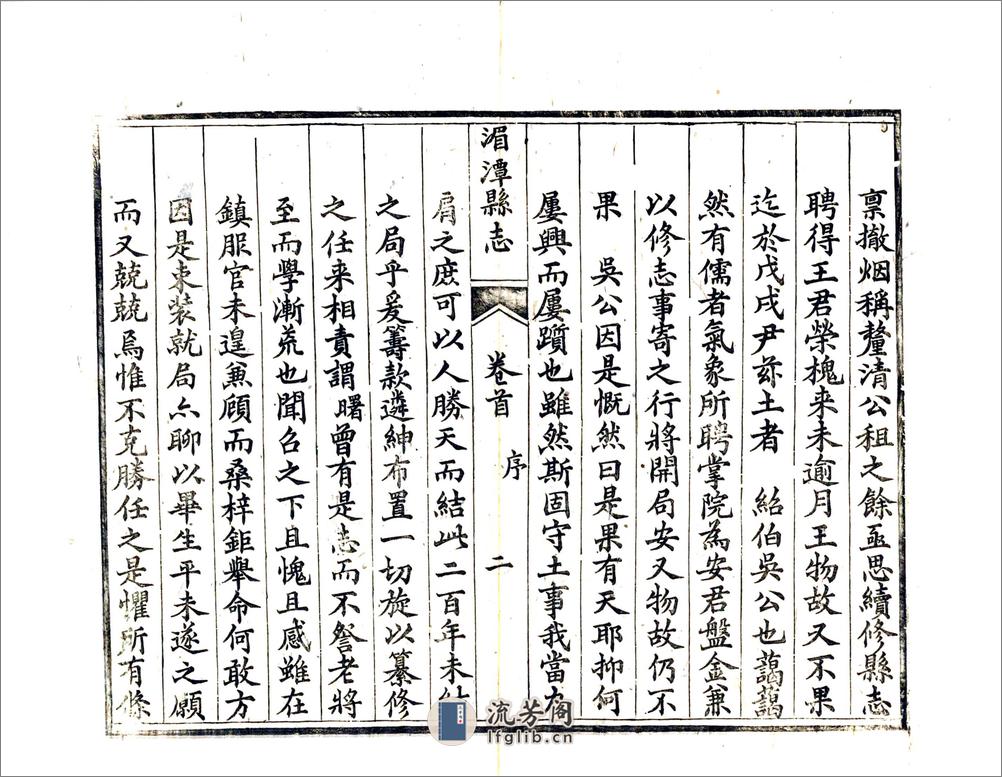 禀撤烟稱釐清公租之餘亟思續修縣志
聘得王君榮槐来未逾月王物故又不果
迄於戊戌尹茲土者　紹伯吳公也藹藹
然有儒者氣象所聘掌院為安君盤金兼
以修志事寄之行將開局安又物故仍不
果　吳公因是慨然曰是果有天耶抑何
屢興而屢躓也雖然斯固守土事我當力
湄潭縣志　卷首　序　二
肩之庶可以人勝天而結此二百年未結
之局乎爰籌款遴紳布置一切旋以纂修
之任来相責謂曙曾有是志而不詧老將
至而學漸荒也聞召之下且愧且感雖在
鎮服官未遑兼顧而桑梓鉅舉命何敢方
因是束装就局亦聊以畢生平未遂之願
而又兢兢焉惟不克勝任之是懼所有條
流芳阁
lfglib.cn